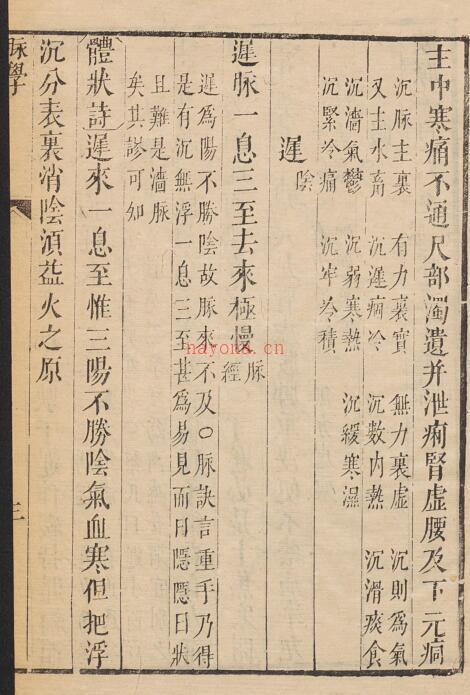 主中寒痛不通尺部濁遺并泄痢腎虚腰及下元痌
沉脉主裏 有力裏實 無力裏虛 沉則爲氣
又主水畜 沉遲痼冷 沉數内熱 沉滑痰食
沉濇氣鬱 沉弱寒熱 沉緩寒濕
沉緊冷痛 沉牢冷積
遲 陰
遲脉一息三至去來極慢 脉經
遲爲陽不勝陰故脉來不及〇脉訣言重手乃得
是有沉無浮一息三至甚爲易見而曰隱隱曰狀
且難是濇脉
矣其謬可知
體狀詩遲來一息至惟三陽不勝陰氣血寒但把浮
沉分表裏消陰湏益火之原
脉學
三
nayona.cn